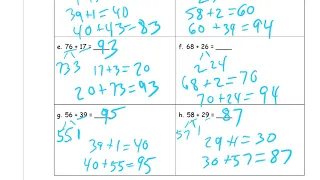 39+1=40
40+43=83
58+2=60
60+39=94
e. 76 + 17 = 93
73 3
17+3=20
20+73=93
f. 68 + 26 = ____
2 24
68+2=70
70+24=94
g. 56 + 39 = 95
55 1
39+1=40
40+55=95
h. 58 + 29 = 87
57 1
29+1=30
30+57=87